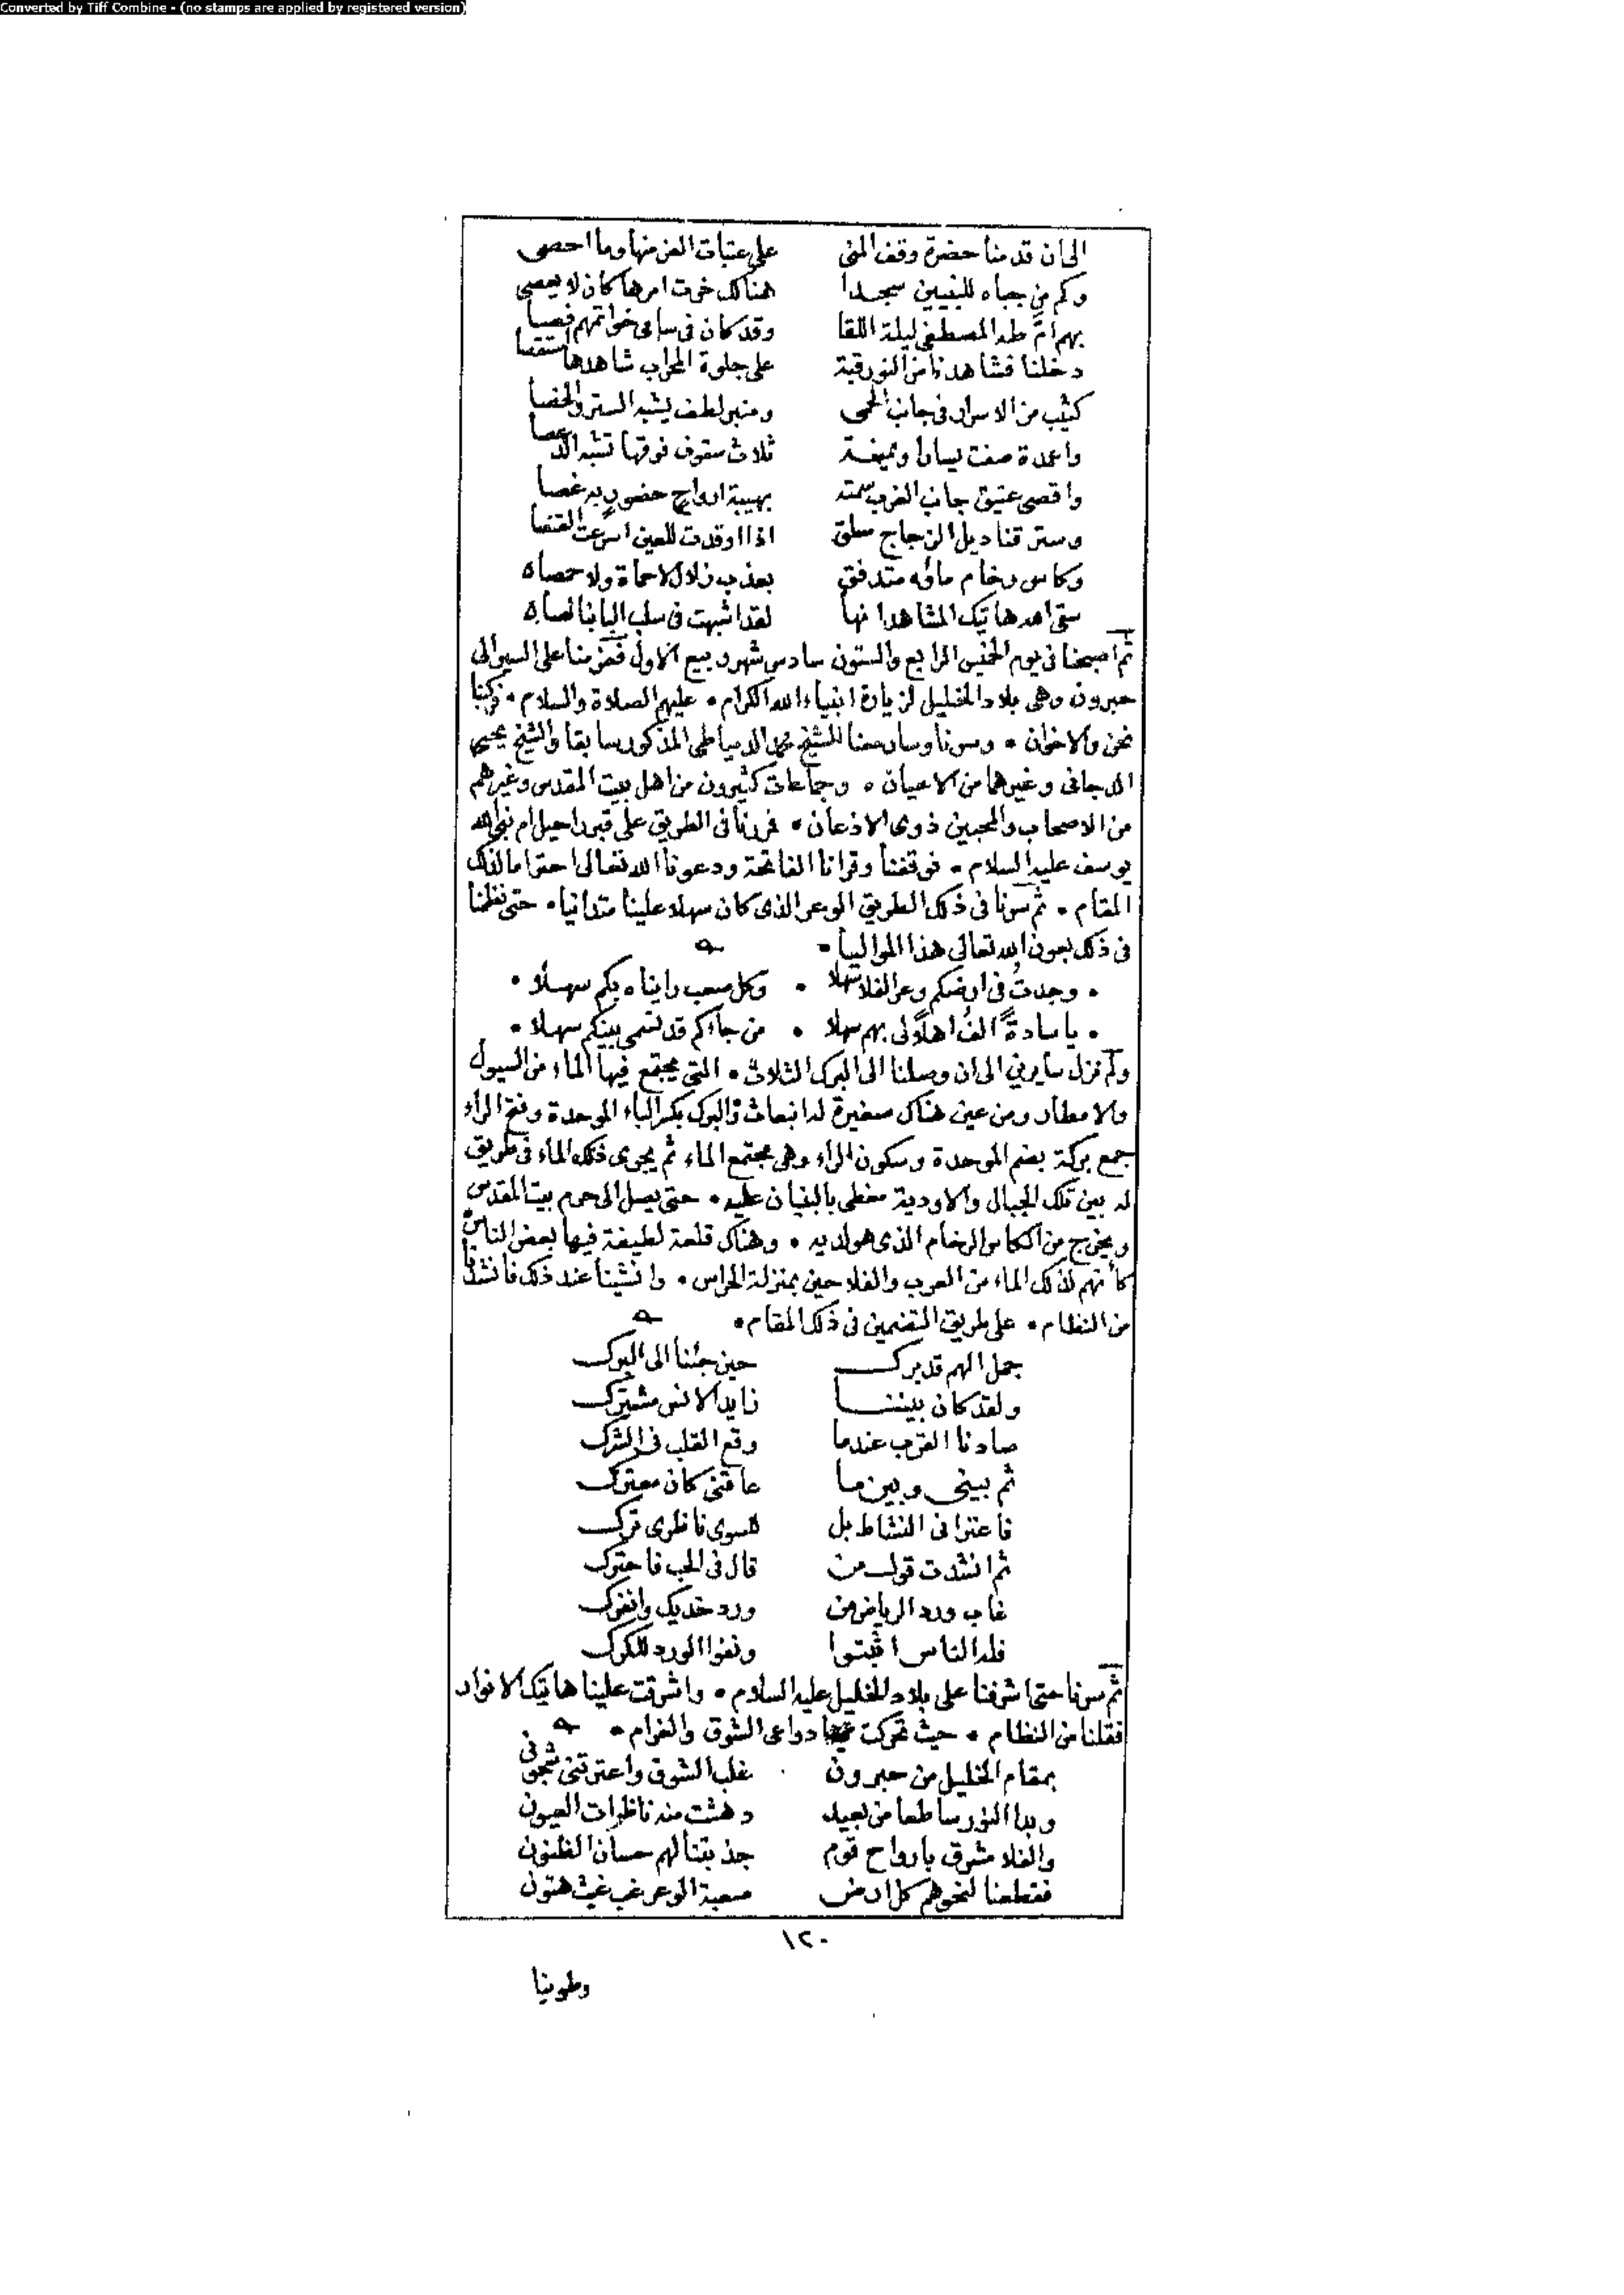 Converted by Tiff Combine - (no stamps are applied by registered version)
الى ان قدمنا حضرة وقف المنى على عتبات العز منها وما احصى
وكم من جباه للنبيين سجدا هنالك خرت امرها كان لا يعصى
بهم ام طه المصطفى ليلة اللقا وقد كان فى سامى خواتمهم فصا
دخلنا فشاهدنا من النور قبة على جلوة المحراب شاهدها استقصا
كثيب من الاسرار فى جانب الحمى ومنبر لطف يشبه الستر والخصا
واعمدة صفت يسارا ويمينة ثلاث سقوف فوقها تشبه الدعصا
واقصى عتيق جانب الغرب سمته بهيبة ارواح حضور به غصا
وستر قناديل الزجاج معلق اذا اوقدت للعين اسرعت القنصا
وكاس رخام مائه متدفق بعذب زلال لا حماة ولا حصاه
سقى الله هاتيك المشاهد انها لقد اشبهت فى سلب البابنا لصاه
ثم اصبحنا فى يوم الخميس الرابع والستون سادس شهر ربيع الاول فعزمنا على السير الى
حبرون وهى بلاد الخليل لزيارة انبياء الله الكرام • عليهم الصلاة والسلام • فركبنا
نحن والاخوان • وسرنا وسار معنا الشيخ محمد الدمياطى المذكور سابقا والشيخ يحيى
الدجانى وغيرهما من الاعيان • وجماعات كثيرون من اهل بيت المقدس وغيرهم
من الاصحاب والمحبين ذوى الاذعان • فمررنا فى الطريق على قبر راحيل ام نبى الله
يوسف عليه السلام • فوقفنا وقرانا الفاتحة ودعونا الله تعالى احتراما لذلك
المقام • ثم سرنا فى ذلك الطريق الوعر الذى كان سهلا علينا متدانيا • حتى نظمنا
فى ذلك بعون الله تعالى هذا المواليا •
• وجدت فى ارضكم وعر الفلا سهلا • وكل صعب رايناه بكم سهلا •
• يا سادة الف اهلا لى بهم سهلا • من جاءكم قد لتمى بينكم سهلا •
ولم نزل سايرين الى ان وصلنا الى البرك الثلاث • التى يجتمع فيها الماء من السيول
والامطار ومن عين هناك صغيرة لها انبعاث والبرك بكسر الباء الموحدة وفتح الراء
جمع بركة بضم الموحدة وسكون الراء وهى مجتمع الماء ثم يجرى ذلك الماء فى طريق
له بين تلك الجبال والاودية مغطى بالبنيان عليه • حتى يصل الى حرم بيت المقدس
ويخرج من الكاس الرخام الذى هو لديه • وهناك قلعة لطيفة فيها بعض الناس
كأنهم لذلك الماء من العرب والفلاحين بمنزلة الحراس • وانشينا عند ذلك فانشدنا
من النظام • على طريق التضمين فى ذلك المقام •
جمل الهم قد برك حين جئنا الى البرك
ولقد كان بيننا زايد الانس مشترك
صادنا القرب عندما وقع القلب فى الشرك
ثم بينى وبين ما عاقنى كان معترك
فاعترا فى النشاط بل للسوى ناظرى ترك
ثم انشدت قول من قال فى الحب فاحترك
غاب ورد الرياض من ورد خديك وانفرك
فله الناس اثبتوا ونفوا الورد للكرك
ثم سرنا حتى اشرفنا على بلاد الخليل عليه السلام • واشرقت علينا هاتيك الانوار
فقلنا من النظام • حيث تحركت دواعى الشوق والغرام •
بمقام الخليل من حبرون غلب الشوق واعترتنى شجونى
وبدا النور ساطعا من بعيد دهشت منه ناظرات العيون
والفلا مشرق بارواح قوم جذبتنا لهم حسان الظنون
فقطعنا لنحوهم كل ارض صعبة الوعر غب غيث هتون
١٢٠
وطوينا